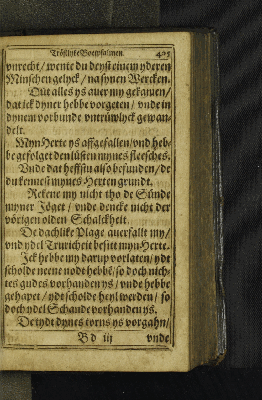 Tröstlyke Boetpsalmen. 425
vnrecht / wente du deyst einem yderen
Minschen gelyck / na synen Wercken.
Düt alles ys auer my gekamen /
dat ick dyner hebbe vorgeten / vnde in
dynem vorbunde vntrüwlyck gewan-
delt.
Myn Herte ys affgefallen / vnd heb-
be gefolget den lüsten mynes fleesches.
Vnde dat heffstu also befunden / de
du kennest mynes Herten grundt.
Rekene my nicht tho de Sünde
myner Jöget / vnde dencke nicht der
vörigen olden Schalckheit.
De dachlike Plage auerfallt my /
vnd ydel Truricheit besitt myn Herte.
Ick hebbe my darup vorlaten / ydt
scholde neene nodt hebbē / so doch nich-
tes gudes vorhanden ys / vnde hebbe
gehapet / ydt scholde heyl werden / so
doch ydel Schande vorhanden ys.
De tydt dynes torns ys vorgahn /
Dd iij vnde